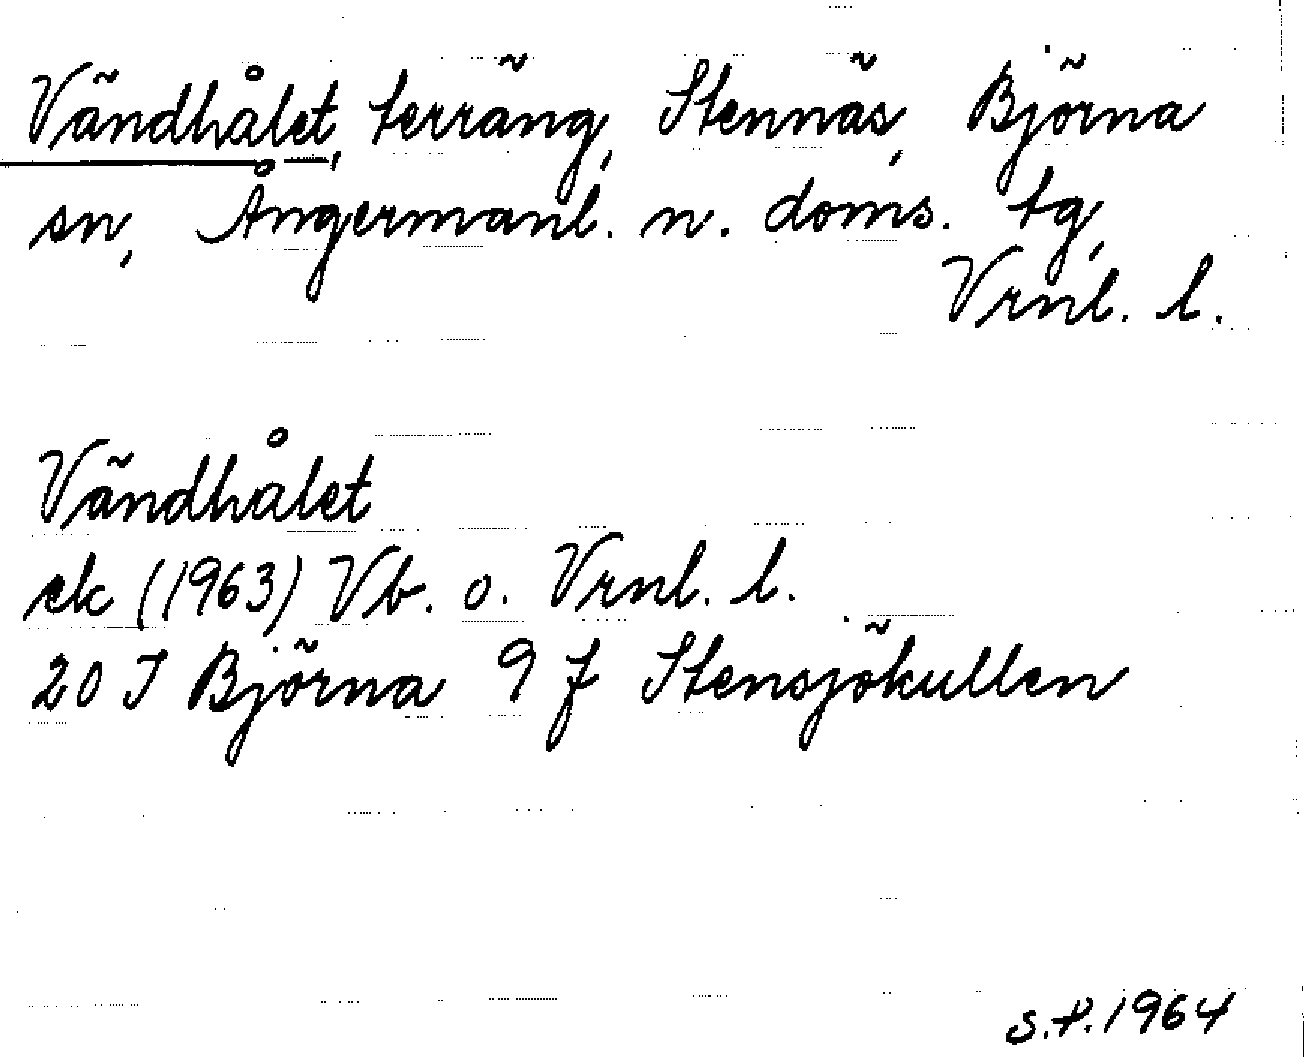 Vändhålet, terräng, Stennäs, Björna
sn, Ångermanl. n. doms. tg,
Vrnl. l.
Vändhålet
ek (1963) Vb. o. Vrnl. l.
20 J Björna 9 f Stensjökullen
S.P. 1964